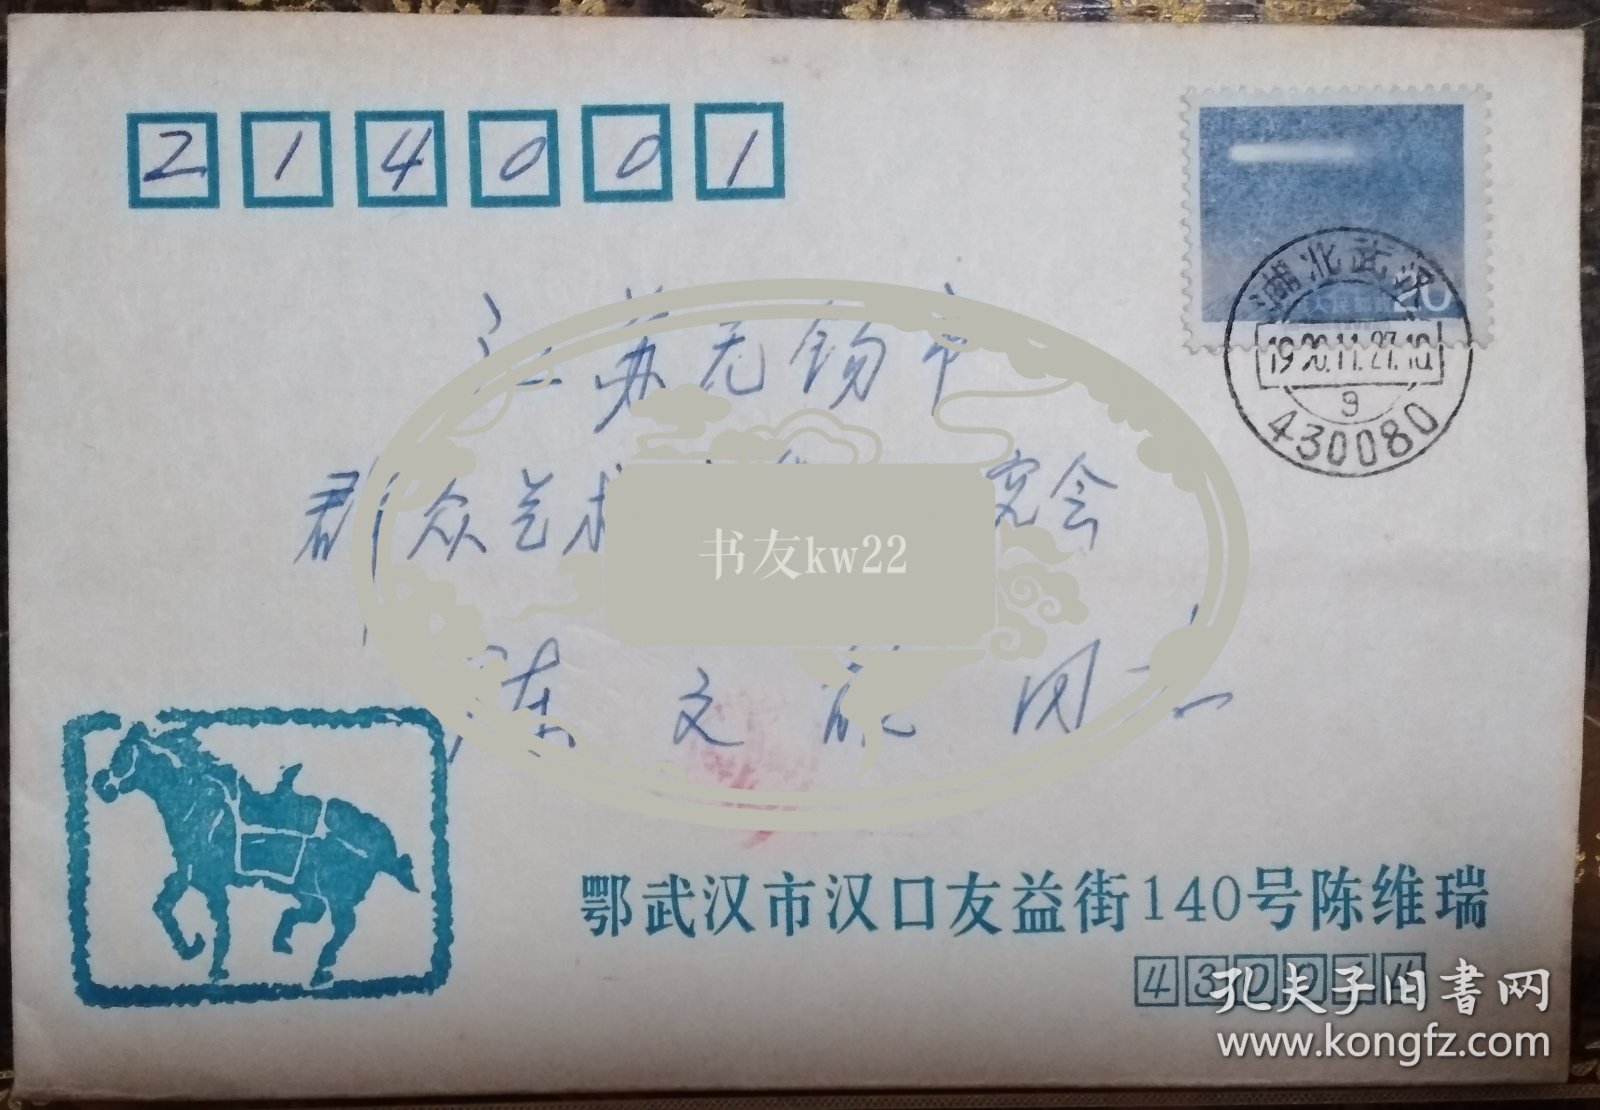 214001
湖北武汉
20
1990.11.27.10
9
430080
江苏无锡市
群众艺术 究会
书友kw22
陈文 同志
鄂武汉市汉口友益街140号陈维瑞
430014
孔夫子旧書网
www.kongfz.com